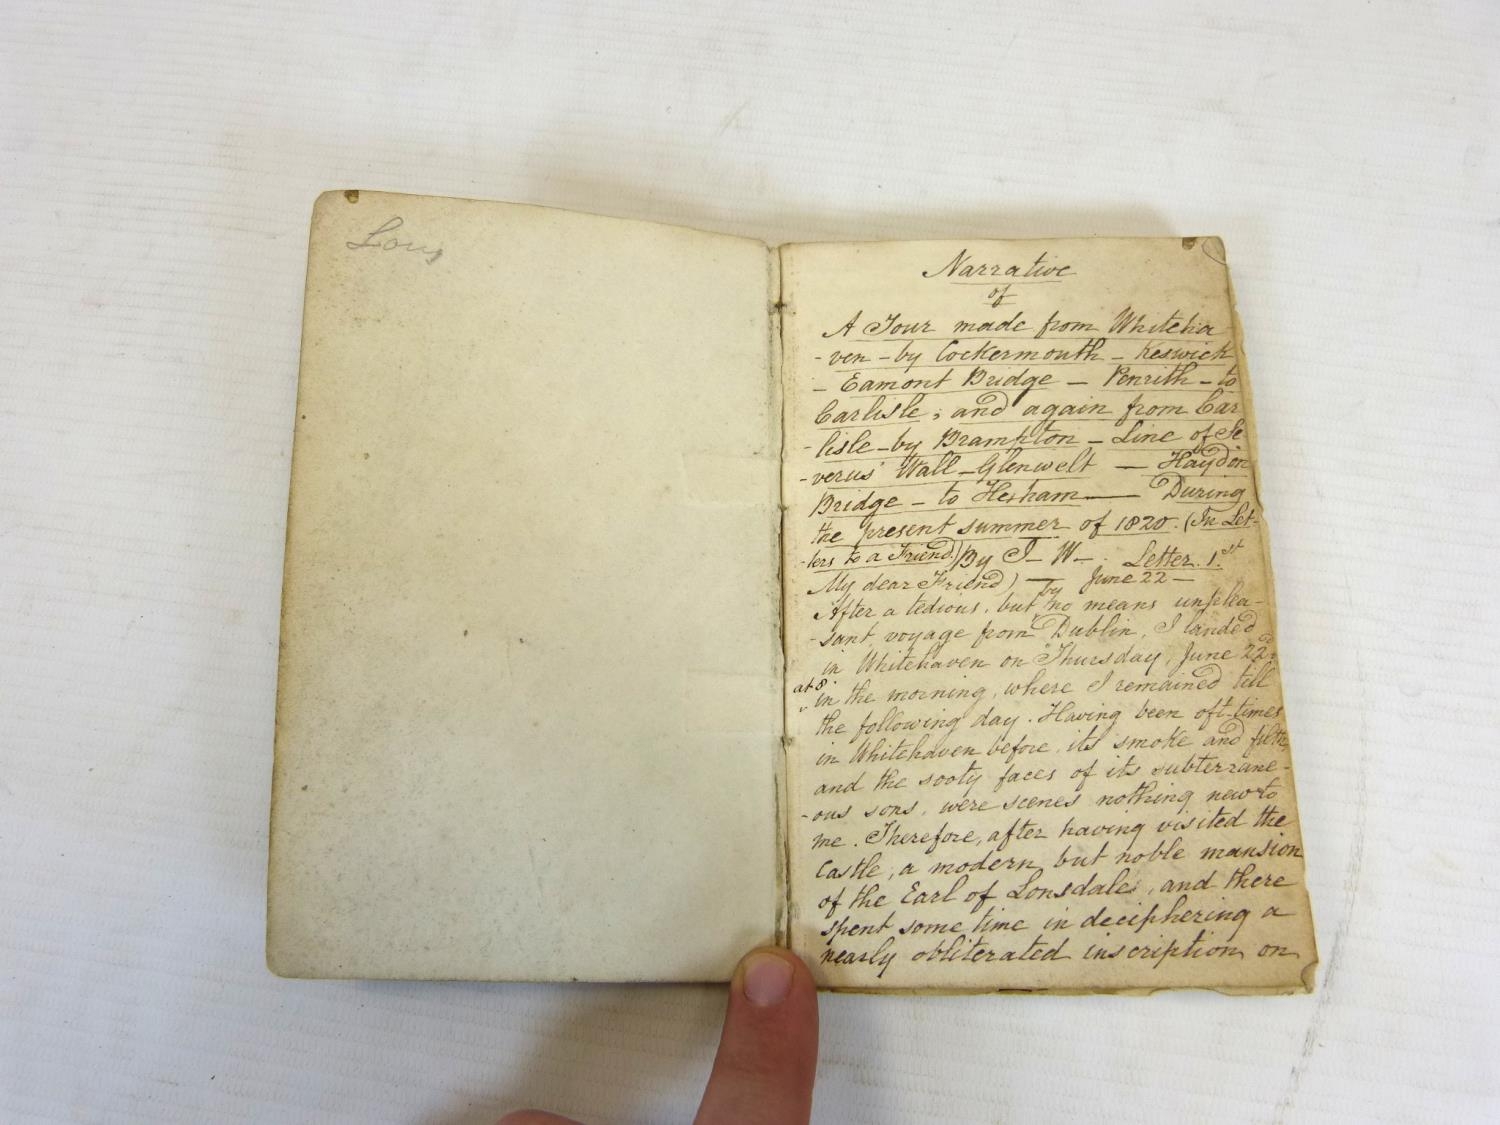 Long
Narrative
of
A Tour made from Whiteha-
-ven - by Cockermouth - Keswick
- Eamont Bridge - Penrith - to
Carlisle; and again from Car
-lisle - by Brampton - Line of Se
-verus' Wall - Glenwelt - Haydon
Bridge - to Hexham - During
the present summer of 1820. (In Let-
-ters to a Friend) By I- W-. Letter. 1.st
My dear Friend) - June 22 -
After a tedious, but by no means unplea-
-sant voyage from Dublin, I landed
in Whitehaven on Thursday, June 22d.
at 8 in the morning, where I remained till
the following day. Having been oft-times
in Whitehaven before, its smoke and filth,
and the sooty faces of its subterrane-
-ous sons, were scenes nothing new to
me. Therefore, after having visited the
Castle, a modern, but noble mansion
of the Earl of Lonsdale, and there
spent some time in deciphering a
nearly obliterated inscription on